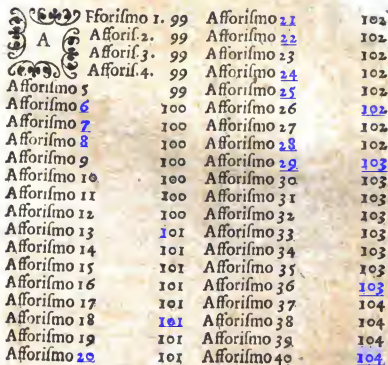 AFforiſmo 1. 99
Afforiſ.2. 99
Afforiſ.3. 99
Afforiſ.4. 99
Afforiſmo 5 99
Afforiſmo 6 100
Afforiſmo 7 100
Afforiſmo 8 100
Afforiſmo 9 100
Afforiſmo 10 100
Afforiſmo 11 100
Afforiſmo 12 100
Afforiſmo 13 101
Afforiſmo 14 101
Afforiſmo 15 101
Afforiſmo 16 101
Afforiſmo 17 101
Afforiſmo 18 101
Afforiſmo 19 101
Afforiſmo 20 101
Afforiſmo 21 102
Afforiſmo 22 102
Afforiſmo 23 102
Afforiſmo 24 102
Afforiſmo 25 102
Afforiſmo 26 102
Afforiſmo 27 102
Afforiſmo 28 102
Afforiſmo 29 103
Afforiſmo 30 103
Afforiſmo 31 103
Afforiſmo 32 103
Afforiſmo 33 103
Afforiſmo 34 103
Afforiſmo 35 103
Afforiſmo 36 103
Afforiſmo 37 104
Afforiſmo 38 104
Afforiſmo 39 104
Afforiſmo 40 104